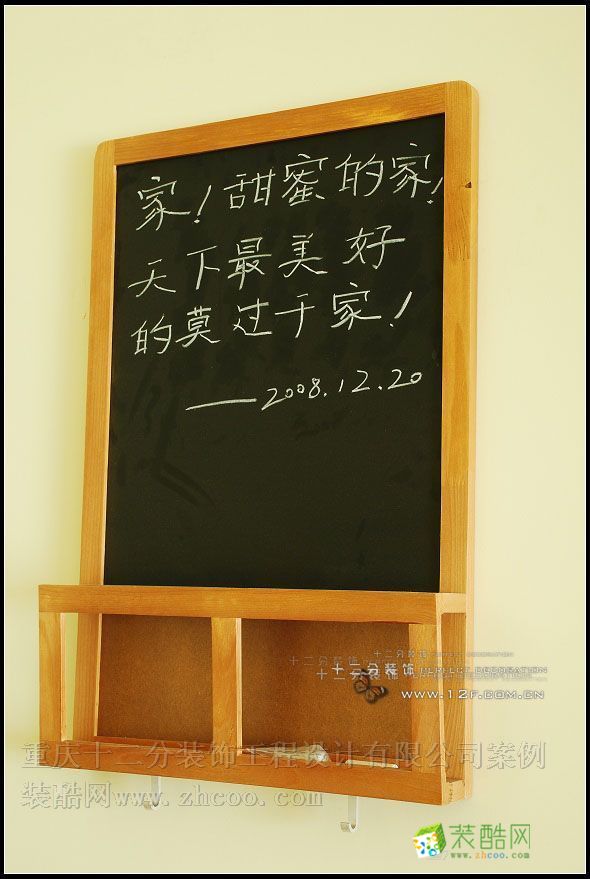 家！甜蜜的家！
天下最美好
的莫过于家！
——2008.12.20
十二分装饰 PERFECT DECORATION
WWW.12F.COM.CN
重庆十二分装饰工程设计有限公司案例
装酷网www.zhcoo.com
装酷网
www.zhcoo.com